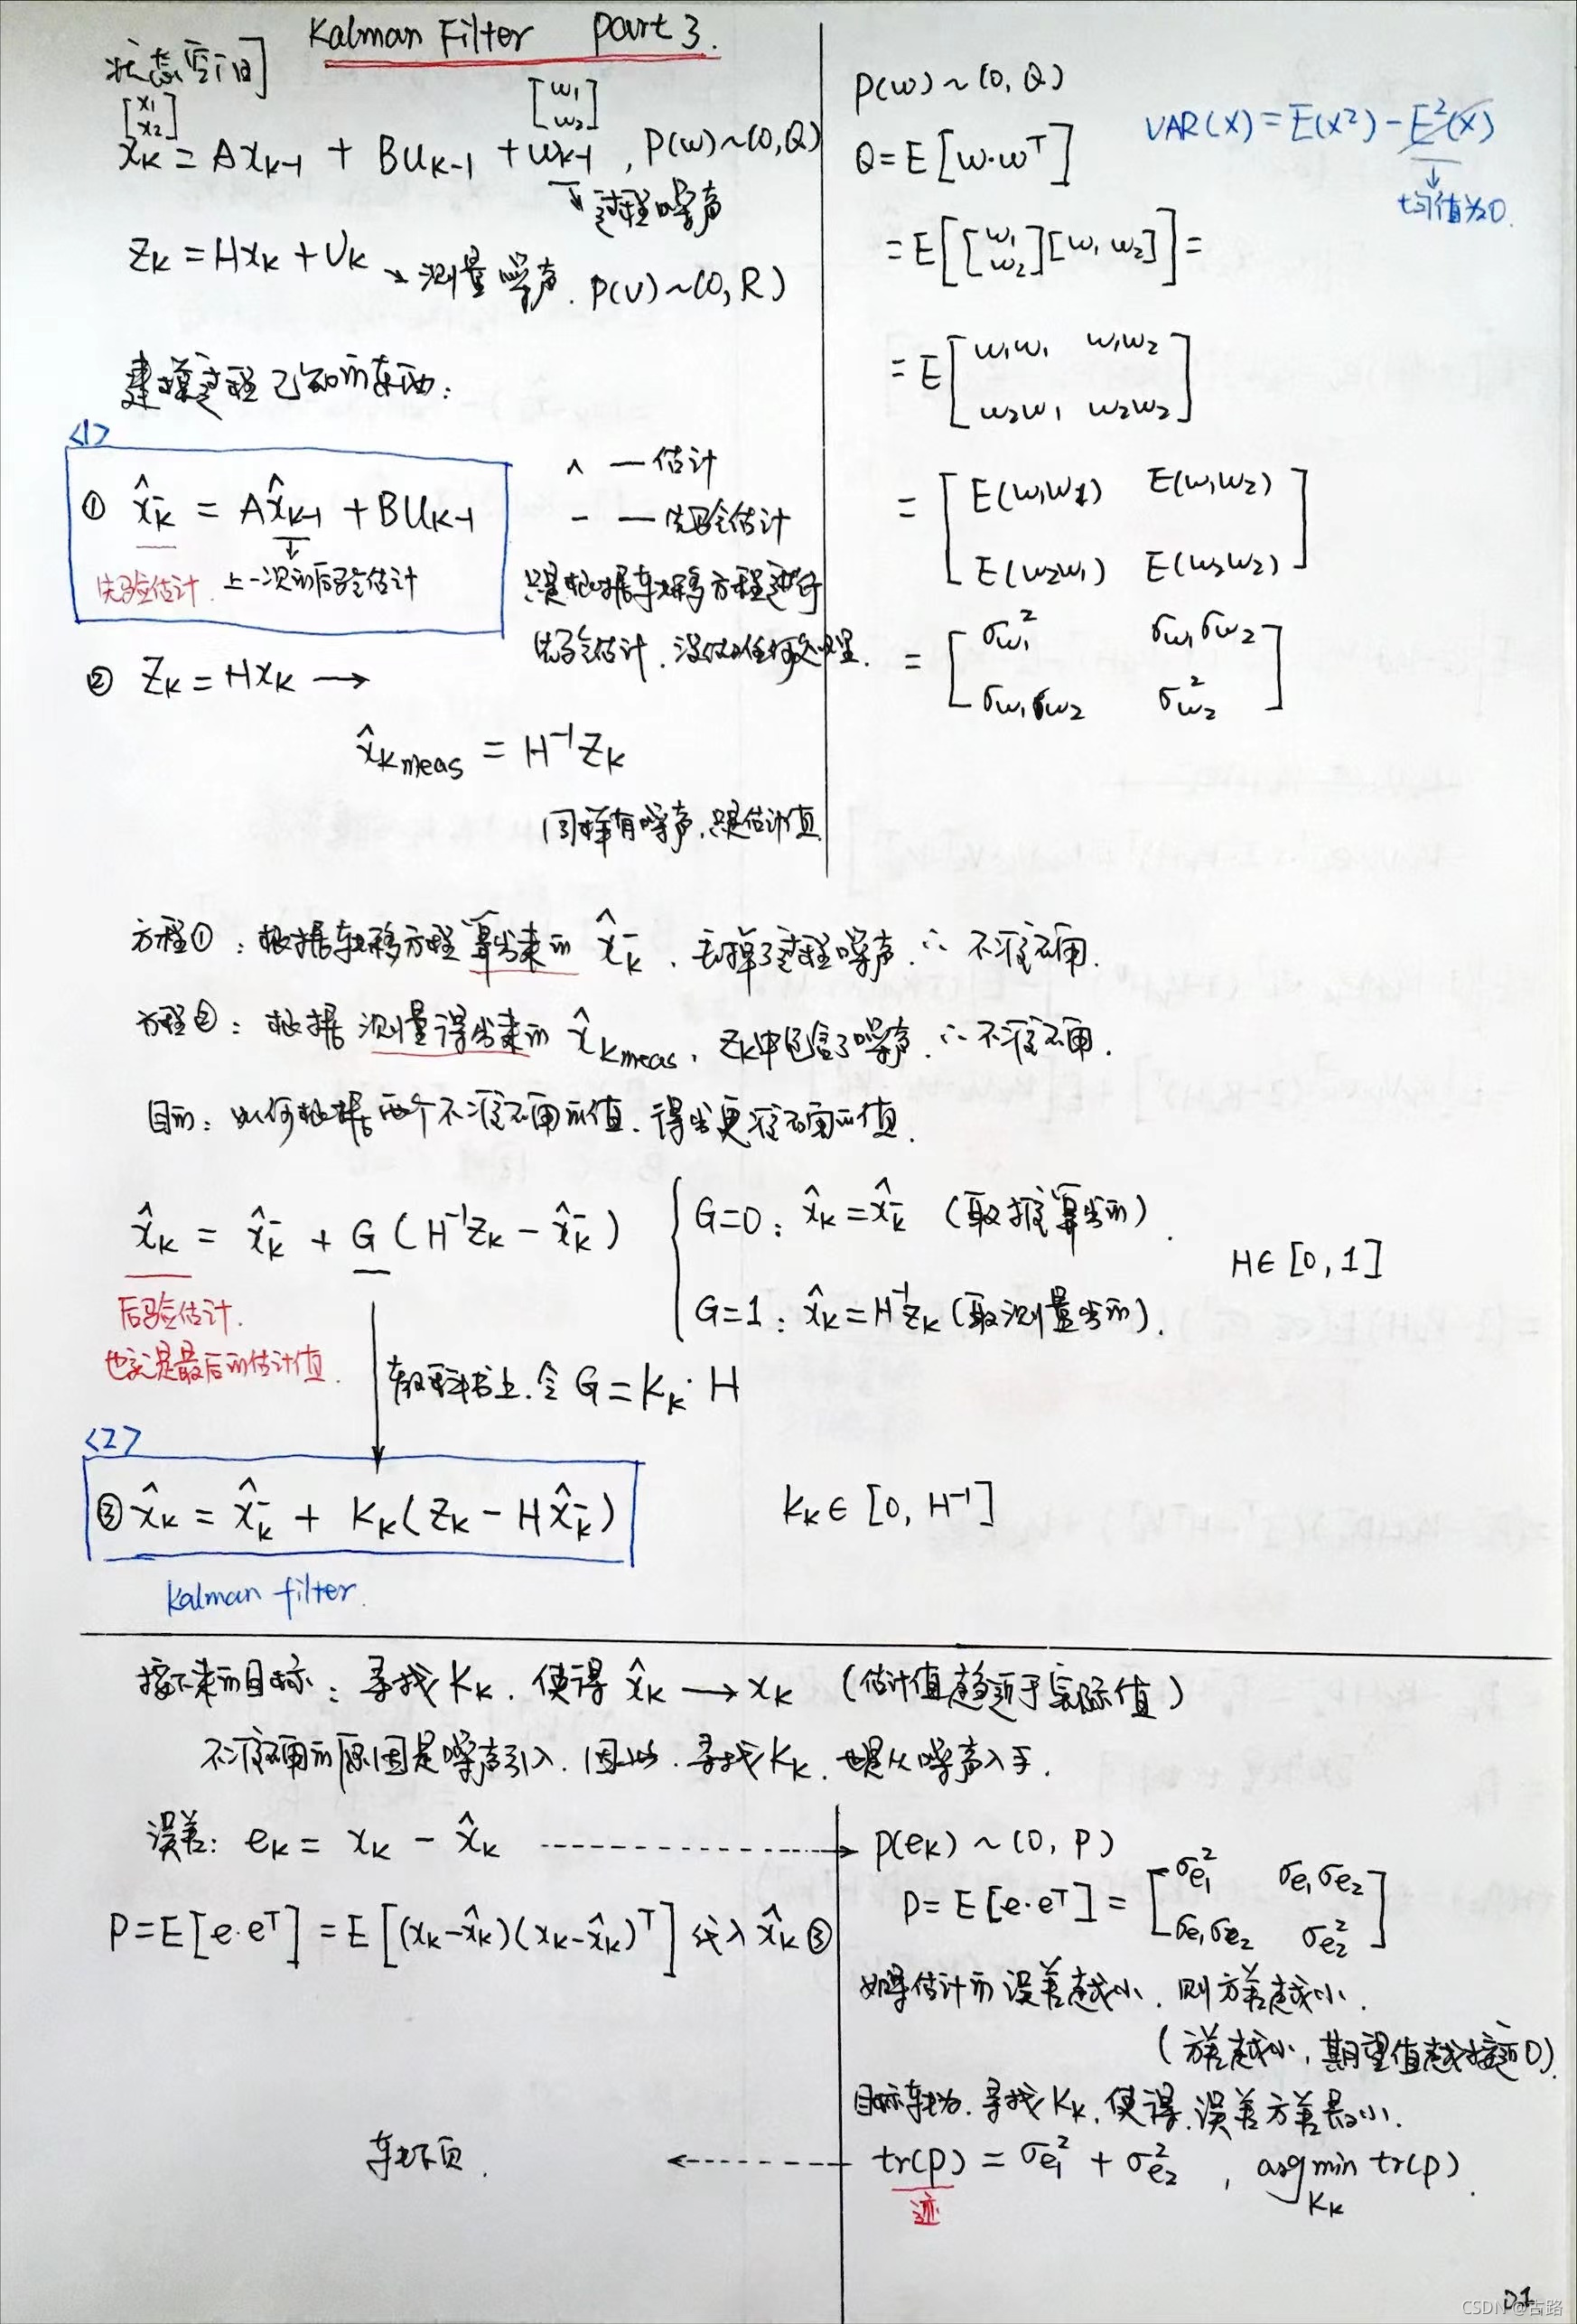 Kalman Filter Part 3.
状态空间
[x₁ x₂]
[w₁ w₂]
xₖ = Axₖ₋₁ + Buₖ₋₁ + wₖ₋₁, P(w)~(0,Q)
↓过程噪声
Zₖ = Hxₖ + Vₖ → 测量噪声. P(V)~(0,R)
建模过程已知的东西:
<1>
① x̂ₖ⁻ = Ax̂ₖ₋₁ + BUₖ₋₁
先验估计. 上一次的后验估计
∧ — 估计
- — 先验估计
只是根据转移方程进行
先验估计. 没做任何处理.
② Zₖ = Hxₖ →
x̂ₖmeas = H⁻¹Zₖ
同样有噪声.只是估计值
P(w)~(0,Q)
VAR(X) = E(X²) - E²(X)
↓
均值为0.
Q = E[w·wᵀ]
= E[[w₁ w₂][w₁ w₂]] =
= E[w₁w₁ w₁w₂
w₂w₁ w₂w₂]
= [E(w₁w₁) E(w₁w₂)
E(w₂w₁) E(w₂w₂)]
= [σw₁² σw₁σw₂
σw₁σw₂ σw₂²]
方程①: 根据转移方程算出来的 x̂ₖ⁻, 丢掉了过程噪声.∴ 不准确.
方程②: 根据测量得出来的 x̂ₖmeas, Zₖ中包含了噪声.∴ 不准确.
目的: 如何根据两个不准确的值.得出更准确的值.
x̂ₖ = x̂ₖ⁻ + G(H⁻¹Zₖ - x̂ₖ⁻)
G=0: x̂ₖ = x̂ₖ⁻ (取推算出的).
G=1: x̂ₖ = H⁻¹Zₖ (取测量出的).
H∈[0,1]
后验估计.
也就是最后的估计值.
教科书上.令 G = Kₖ·H
<2>
③ x̂ₖ = x̂ₖ⁻ + Kₖ(Zₖ - Hx̂ₖ⁻)
Kₖ∈[0, H⁻¹]
Kalman filter.
接下来的目标: 寻找Kₖ. 使得 x̂ₖ → xₖ (估计值趋近于实际值)
不准确的原因是噪声引入.因此.寻找Kₖ.也是从噪声入手.
误差: eₖ = xₖ - x̂ₖ
P = E[e·eᵀ] = E[(xₖ-x̂ₖ)(xₖ-x̂ₖ)ᵀ] 代入 x̂ₖ③
P(eₖ)~(0, P)
P = E[e·eᵀ] = [σe₁² σe₁σe₂
σe₁σe₂ σe₂²]
如果估计的误差越小.则方差越小.
(方差越小,期望值越接近0)
目标转为.寻找Kₖ,使得.误差方差最小.
tr(P) = σe₁² + σe₂², argmin tr(P).
Kₖ
迹
转下页.
CSDN @古路